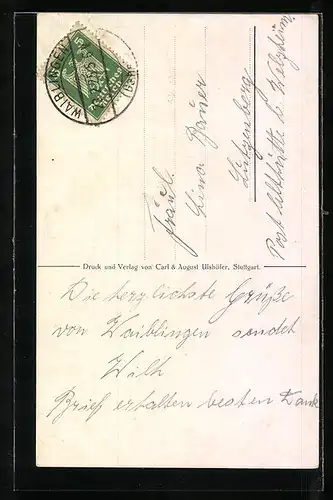 WAIBLINGEN
Fräul.
Lina Bauer
Lützenberg
Post Althütte b. Welzheim
Druck und Verlag von Carl & August Ulshöfer, Stuttgart.
Die herzlichste Grüße
von Waiblingen sendet
Wilh
Brief erhalten besten Dank